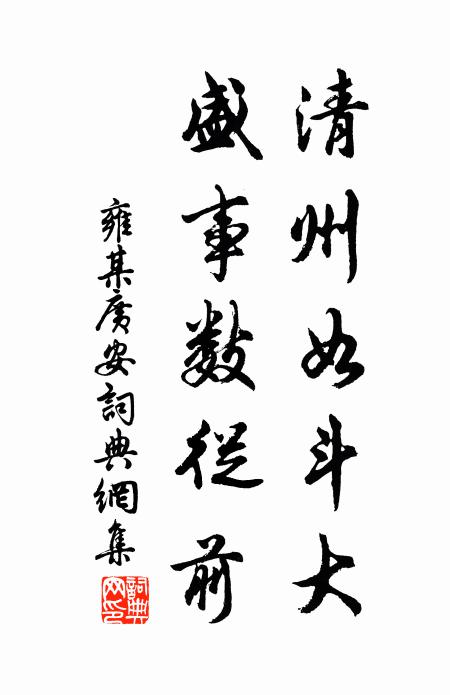 清州如斗大
盛事数從前
雍某廣安詞典網集
詞典網印